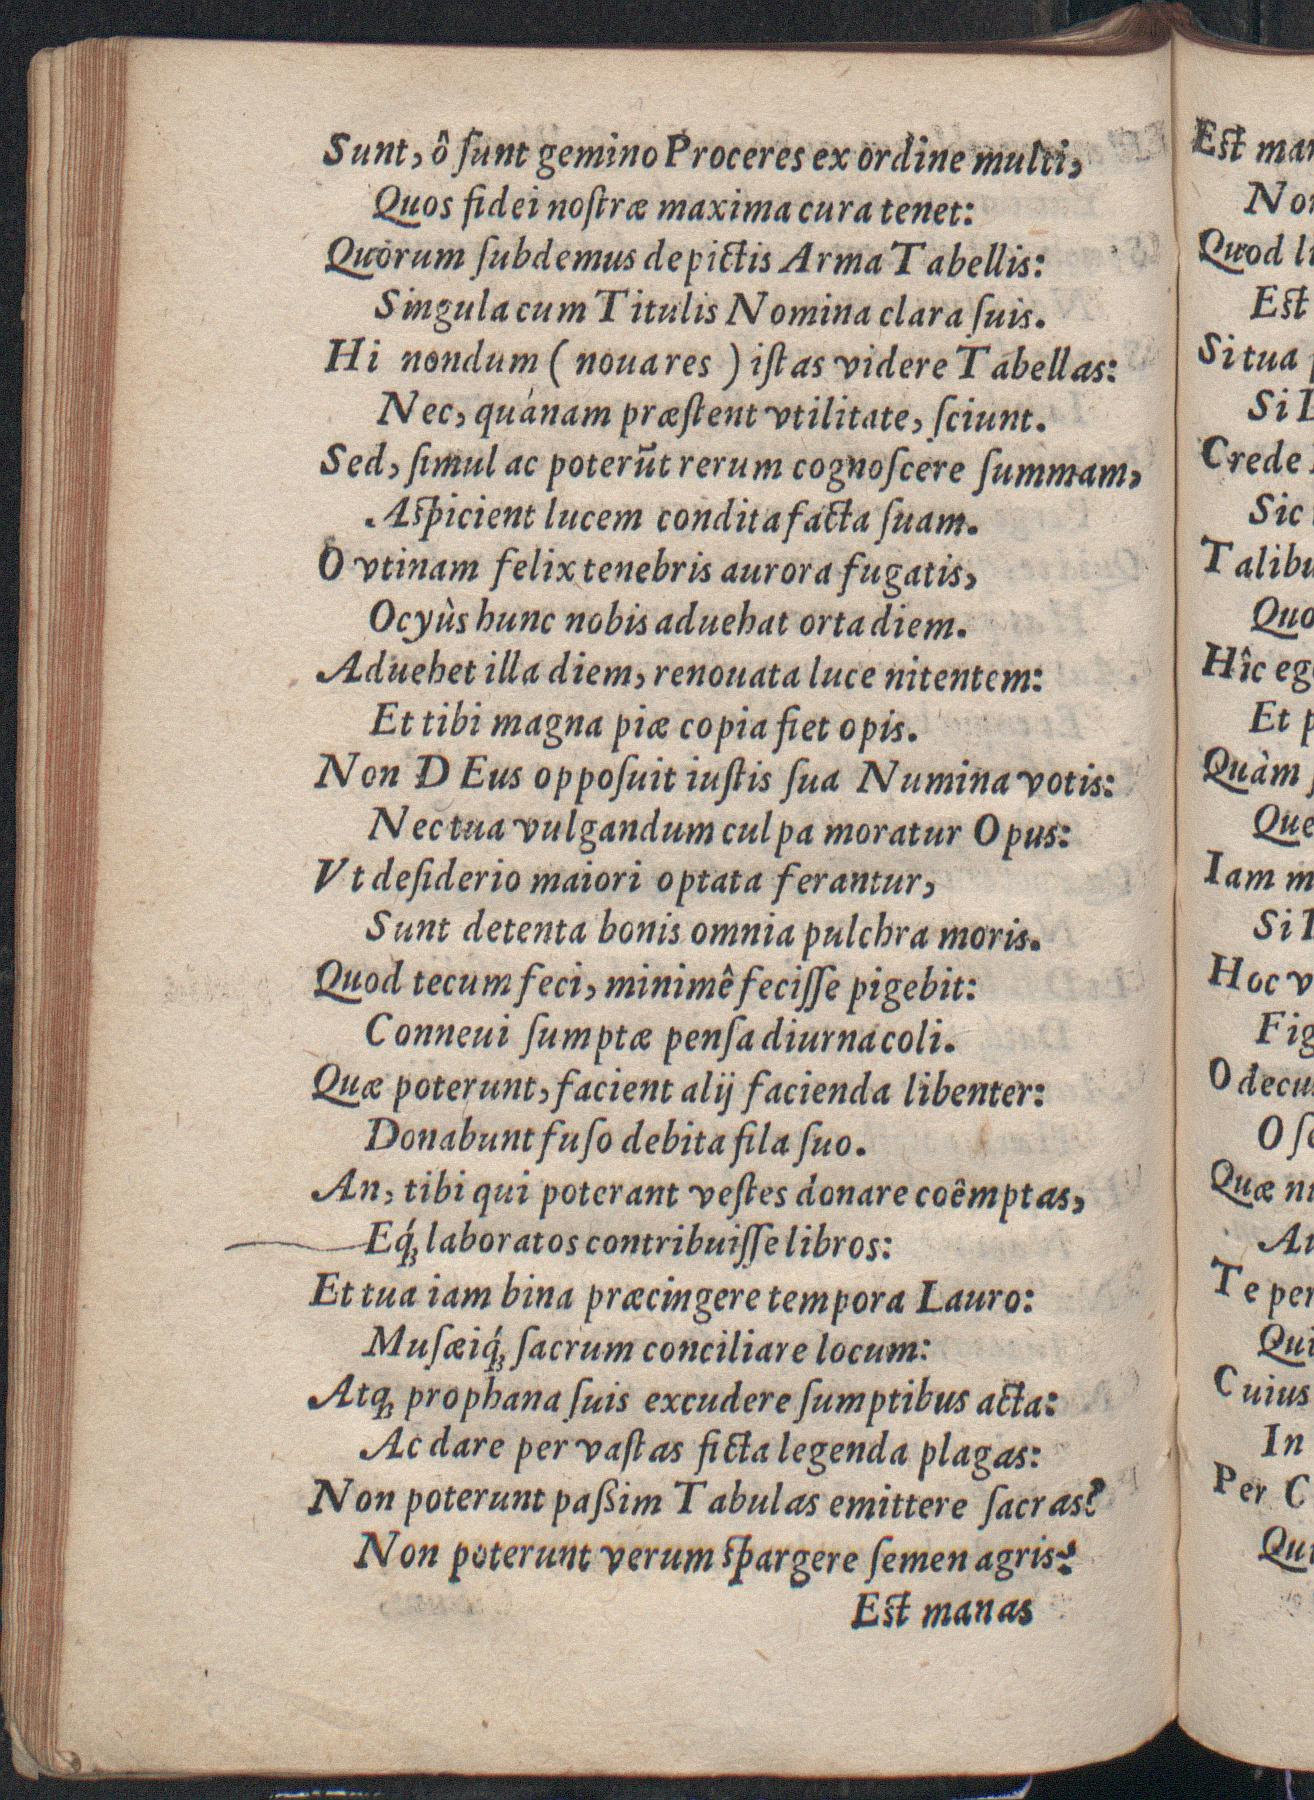 Sunt, ô ſunt gemino Proceres ex ordine multi,
Quos fidei noſtræ maxima cura tenet:
Quorum ſubdemus depictis Arma Tabellis:
Singula cum Titulis Nomina clara ſuis.
Hi nondum ( noua res ) iſtas videre Tabellas:
Nec, quánam præſtent vtilitate, ſciunt.
Sed, ſimul ac poterūt rerum cognoſcere ſummam,
Aſpicient lucem condita facta ſuam.
O vtinam felix tenebris aurora fugatis,
Ocyùs hunc nobis aduehat orta diem.
Aduehet illa diem, renouata luce nitentem:
Et tibi magna piæ copia fiet opis.
Non DEus oppoſuit iuſtis ſua Numina votis:
Nec tua vulgandum culpa moratur Opus:
Vt deſiderio maiori optata ferantur,
Sunt detenta bonis omnia pulchra moris.
Quod tecum feci, minimê feciſſe pigebit:
Conneui ſumptæ penſa diurna coli.
Quæ poterunt, facient alij facienda libenter:
Donabunt fuſo debita fila ſuo.
An, tibi qui poterant veſtes donare coêmptas,
Eq́ꝫ laboratos contribuiſſe libros:
Et tua iam bina præcingere tempora Lauro:
Muſæiq́ꝫ ſacrum conciliare locum:
Atqꝫ prophana ſuis excudere ſumptibus acta:
Ac dare per vaſtas ficta legenda plagas:
Non poterunt paſsim Tabulas emittere ſacras?
Non poterunt verum ſpargere ſemen agris?
Eſt manas
Eſt
Quod
Eſt
Si tua
Si
Crede
Sic
Hîc
Et
Quàm
Iam
Si
Hoc
O
Quæ
Te
Cuius
In
Per C